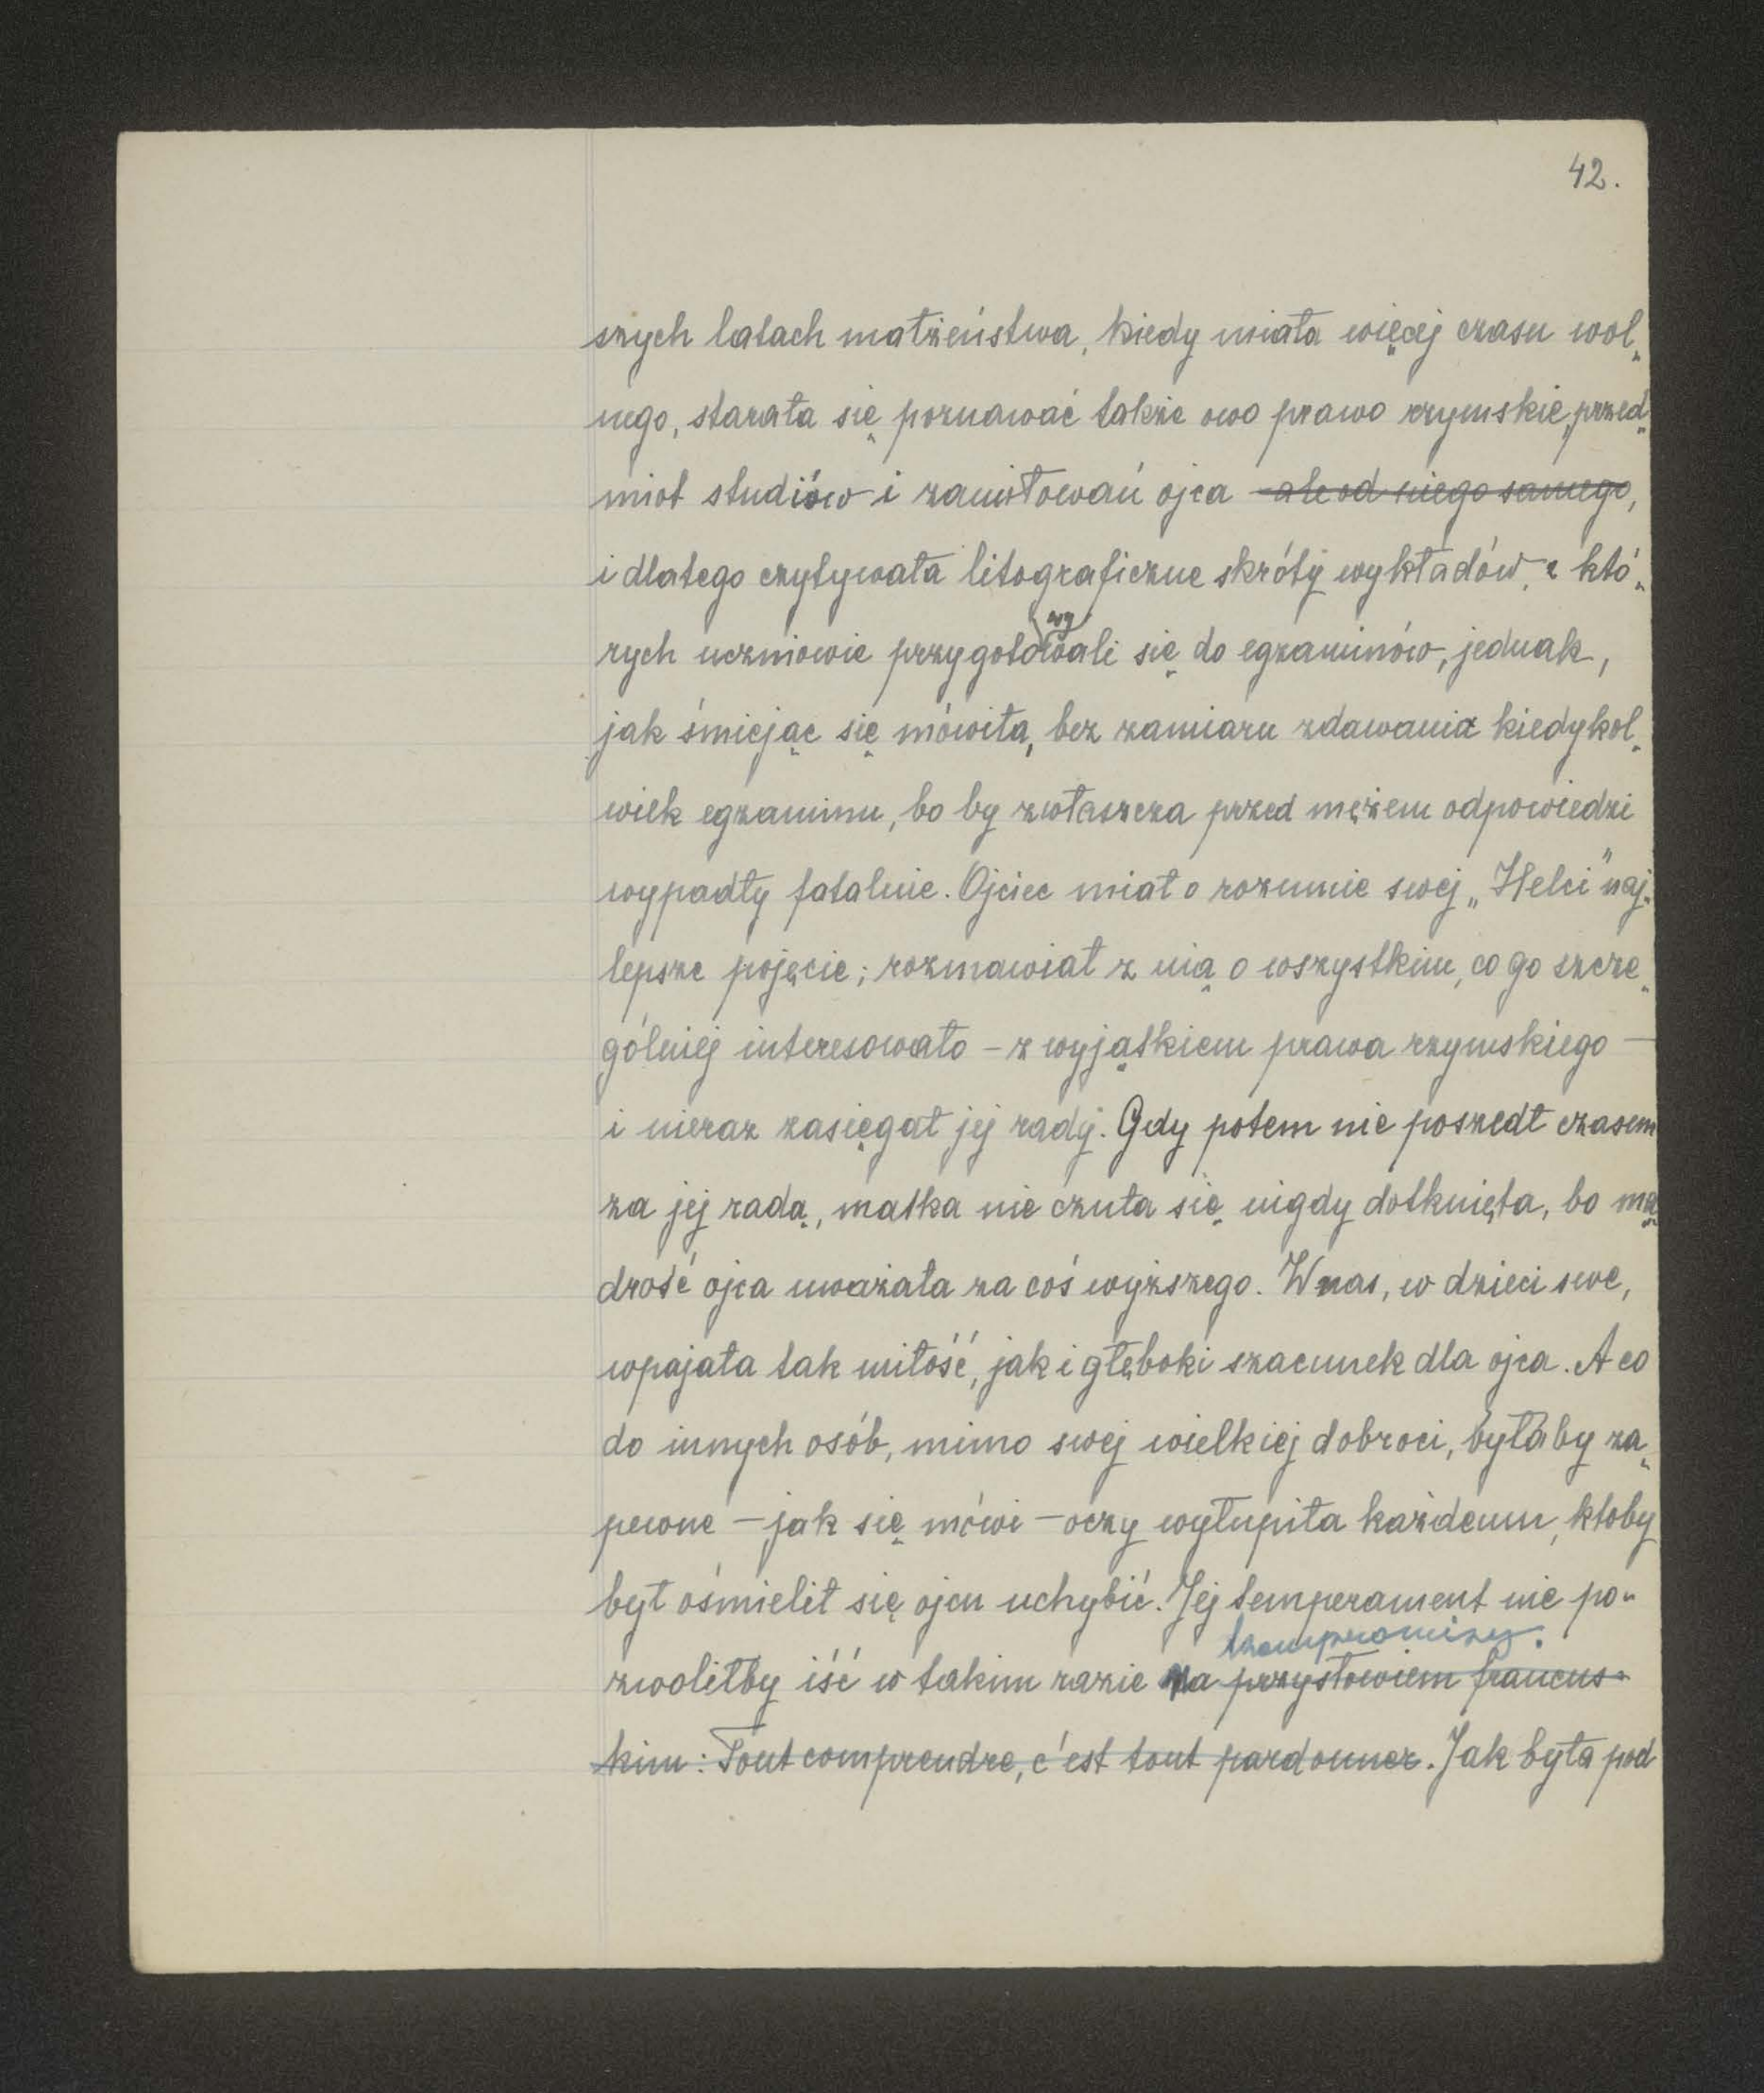 42.
szych latach małżeństwa, kiedy miała więcej czasu wol-
nego, starała się poznawać także owo prawo rzymskie, przed-
miot studiów i zamiłowań ojca ~~ale od niego samego~~,
i dlatego czytywała litograficzne skróty wykładów, z któ-
wy
rych uczniowie przygotowali się do egzaminów, jednak,
jak śmiejąc się mówiła, bez zamiaru zdawania kiedykol-
wiek egzaminu, bo by zwłaszcza przed mężem odpowiedzi
wypadły fatalnie. Ojciec miał o rozumie swej „Helci" naj-
lepsze pojęcie; rozmawiał z nią o wszystkim, co go szcze-
gólniej interesowało – z wyjątkiem prawa rzymskiego –
i nieraz zasięgał jej rady. Gdy potem nie poszedł czasem
za jej radą, matka nie czuła się nigdy dotknięta, bo mą-
drość ojca uważała za coś wyższego. W nas, w dzieci swe,
wpajała tak miłość, jak i głęboki szacunek dla ojca. A co
do innych osób, mimo swej wielkiej dobroci, byłaby za-
pewne – jak się mówi – oczy wyłupiła każdemu, ktoby
był ośmielił się ojcu uchybić. Jej temperament nie po-
kompromisy.
zwoliłby iść w takim razie na ~~przysłowiem francus-~~
~~kim: Tout comprendre, c'est tout pardonner~~. Jak była pod